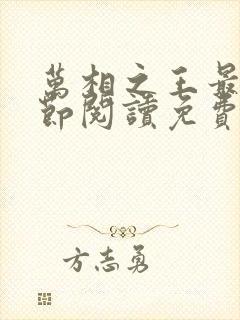 萬相之王最
節閱讀免費
方志勇